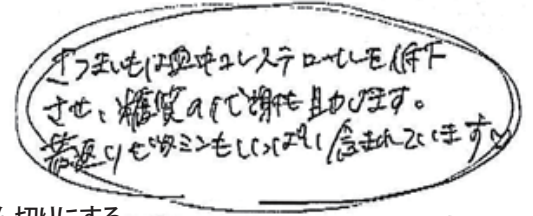 さつまいもは血中コレステロールを低下
させ、糖質の代謝も助けます。
若返りビタミンもいっぱい含まれています♡
ん切りにする